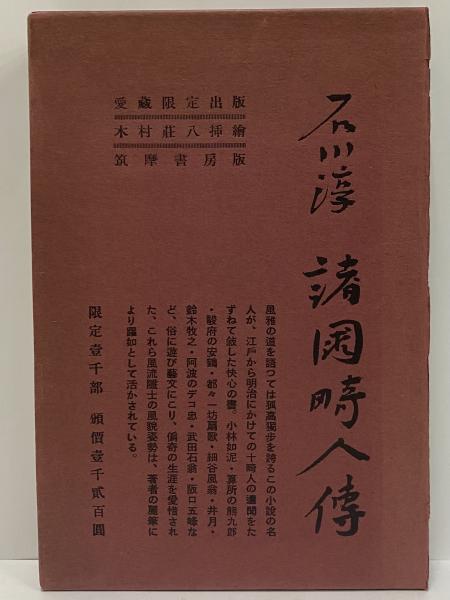 石川淳 諸國畸人傳
愛藏限定出版
木村莊八挿繪
筑摩書房版
風雅の道を語つては孤高獨步を誇るこの小說の名
人が、江戶から明治にかけての十畸人の遺聞をた
ずねて敍した快心の書。小林如泥・算所の熊九郎
・駿府の安鶴・都々一坊扇歌・細谷風翁・井月・
鈴木牧之・阿波のデコ忠・武田石翁・阪口五峰な
ど、俗に遊び藝文にこり、偏奇の生涯を愛惜され
た、これら風流隱士の風貌姿勢は、著者の麗筆に
より躍如として活かされている。
限定壹千部 頒價壹千貳百圓